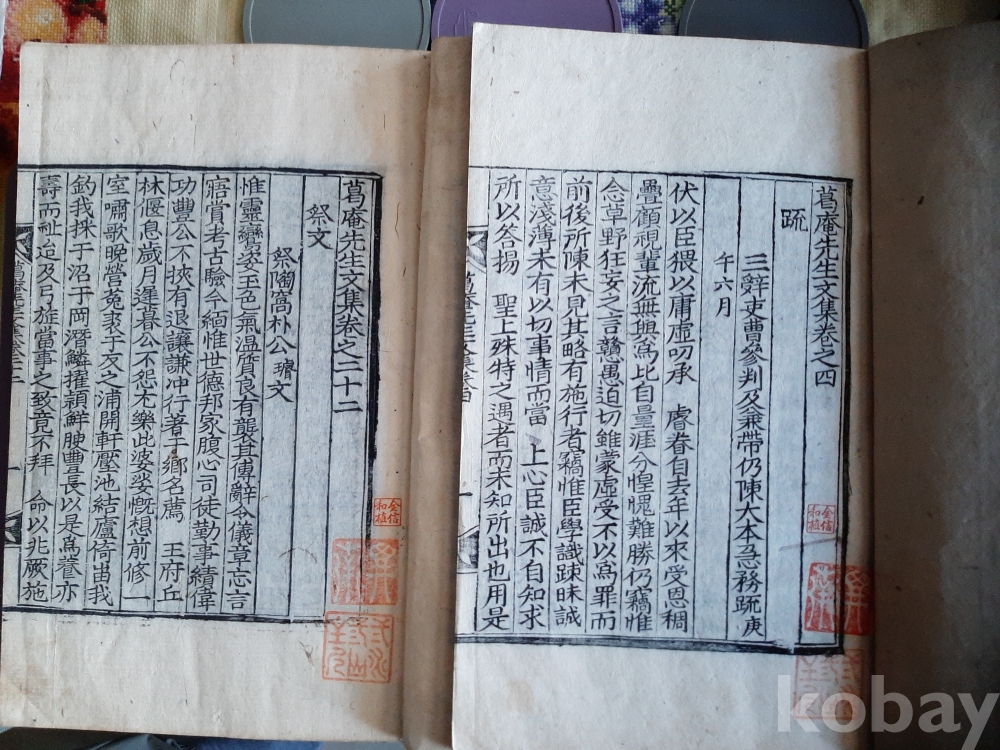 葛庵先生文集卷之四
疏
三辭吏曹參判及兼帶仍陳大本急務疏 庚
午六月
伏以臣猥以庸虛叨承 睿眷自去年以來受恩稠
疊顧視輩流無與爲比自量涯分惶愧難勝仍竊惟
念草野狂妄之言戇愚迫切雖蒙虛受不以爲罪而
前後所陳未見其略有施行者竊惟臣學識踈昧誠
意淺薄未有以切事情而當 上心臣誠不自知求
所以答揚 聖上殊特之遇者而未知所出也用是
葛庵先生文集卷之二十二
祭文
祭陶窩朴公 瓊文
惟靈鸞姿玉色氣溫質良有襲其傳辭令儀章志言
寤賞考古驗今緬惟世德邦家腹心司徒勤事績偉
功豐公不挾有退讓謙冲行著于鄉名薦 王府丘
林偃息歲月遲暮公不怨尤樂此婆娑慨想前修一
室嘯歌晩營菟裘于亥之浦開軒壓池結廬倚岵我
釣我採于沼于岡潛鱗擢穎鮮腴豊長以是爲養亦
壽而祉迨及弓旌當事之致竟不拜 命以兆厥施
金信
和植
金信
和植
kobay